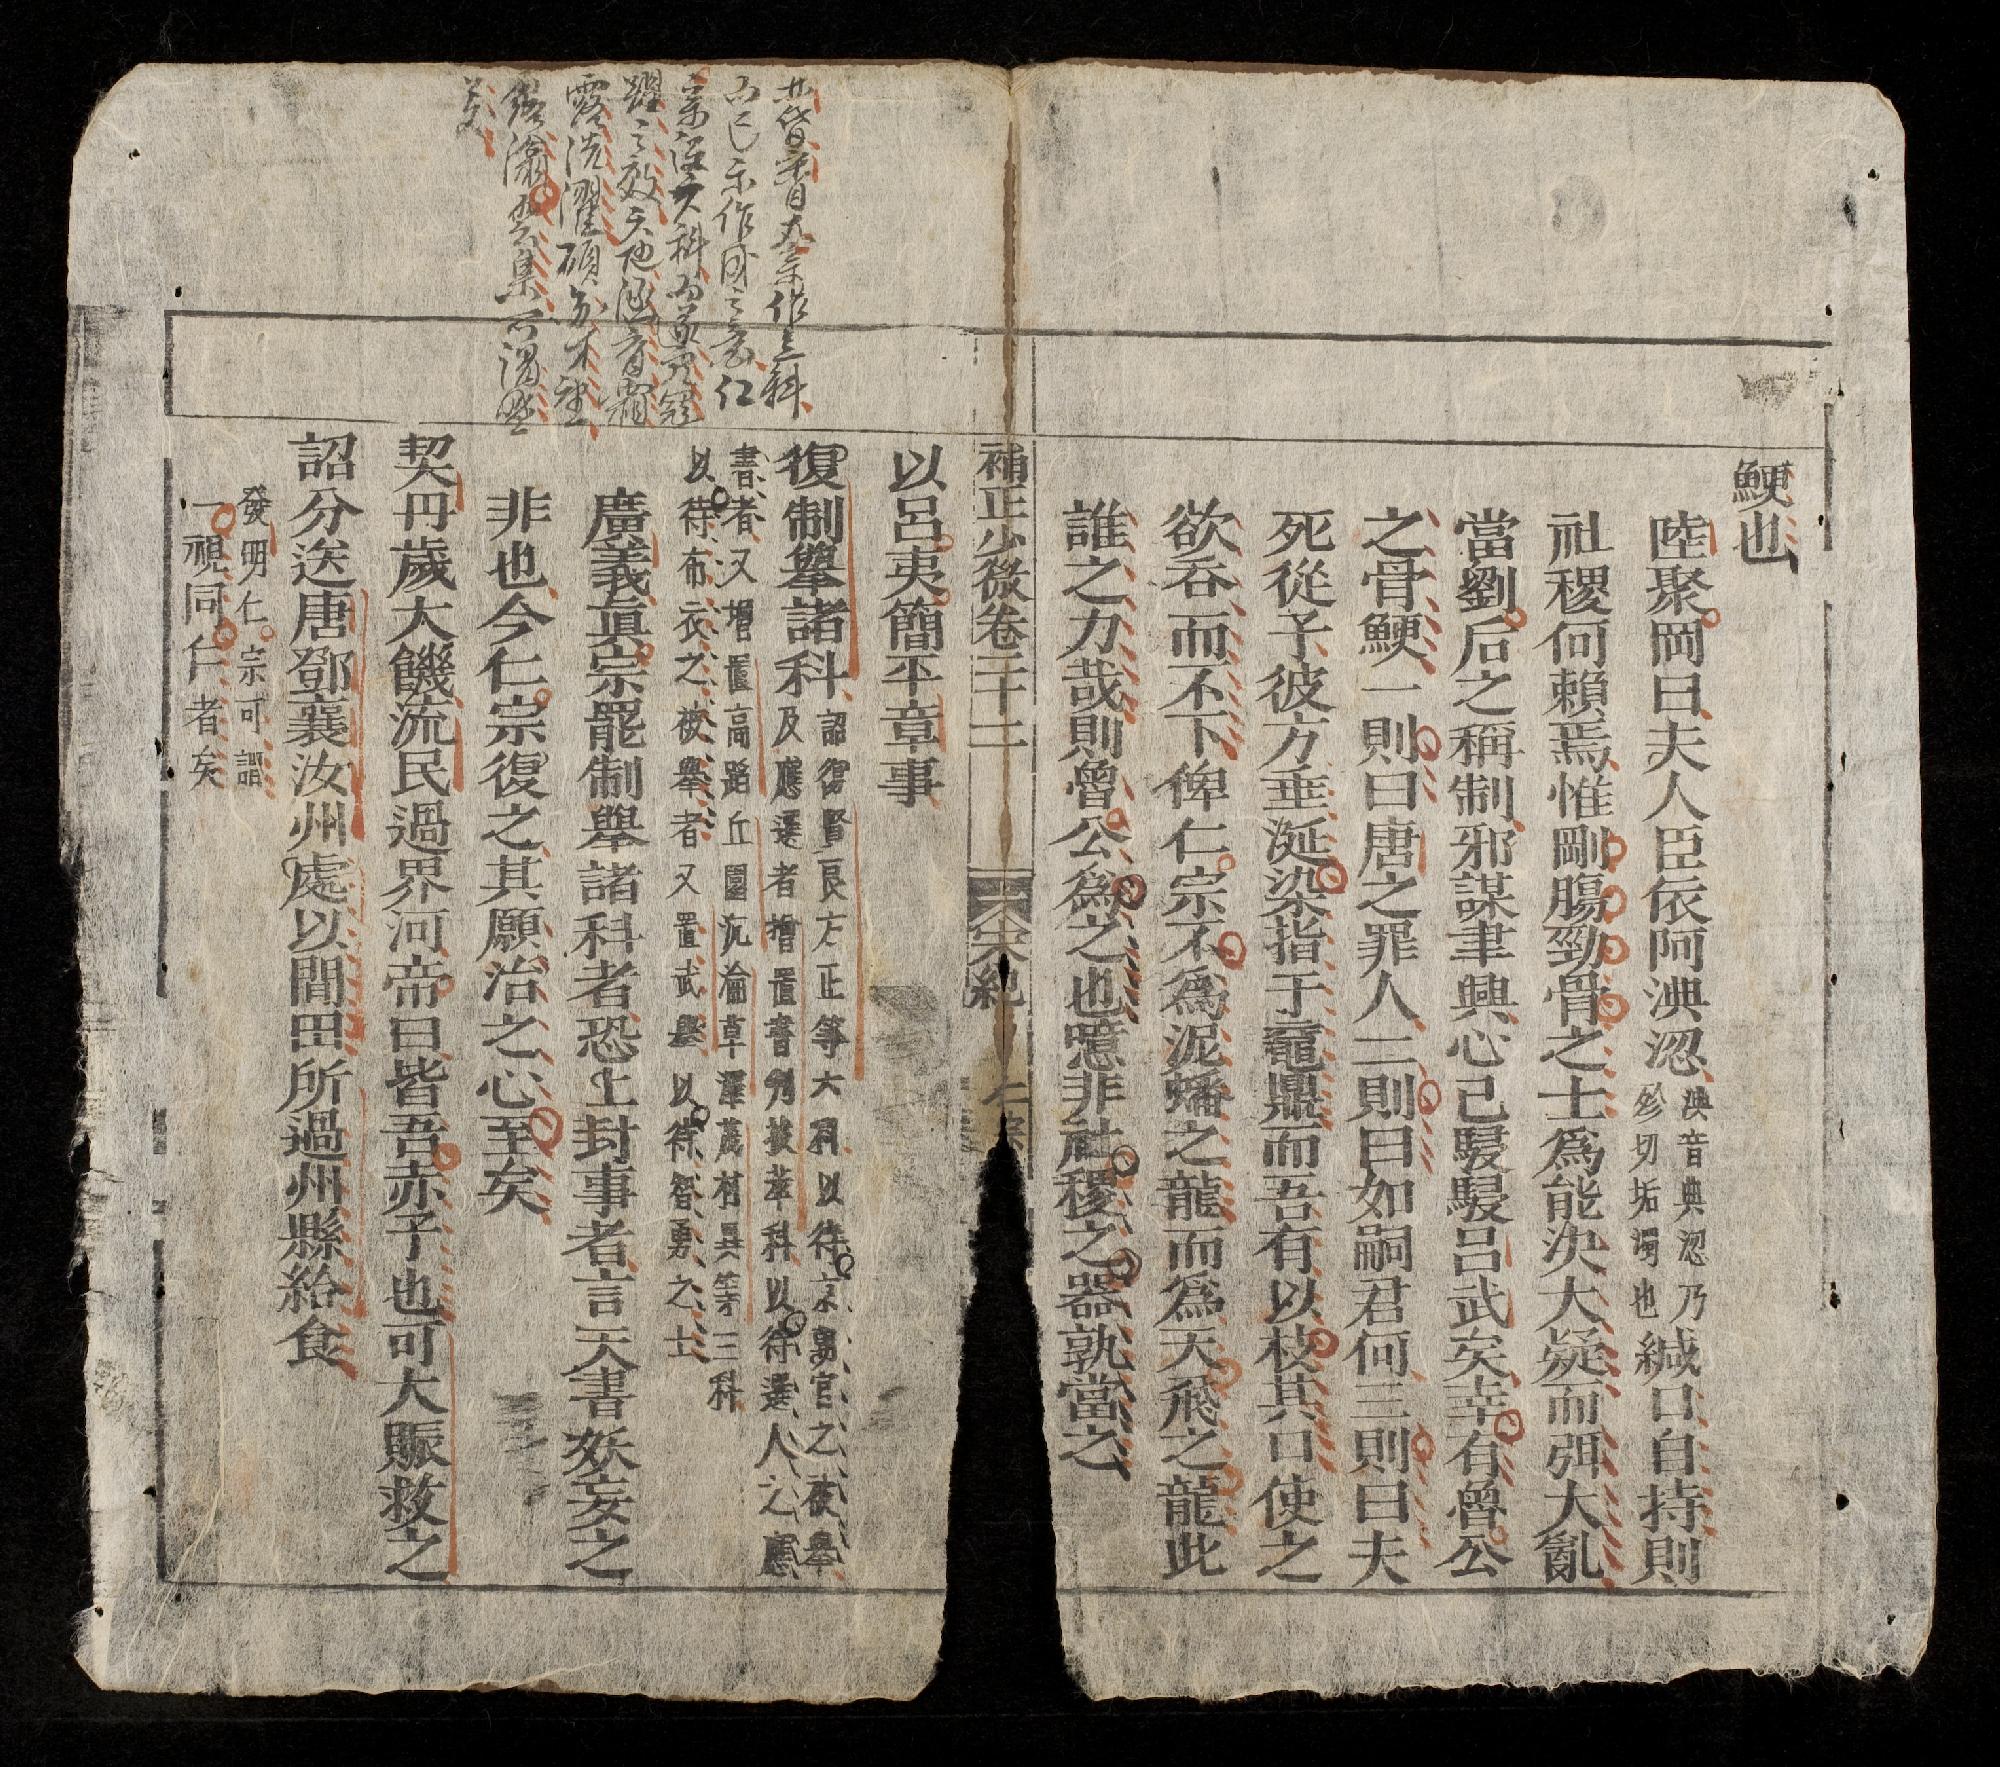 鯁也
陸聚岡曰夫人臣依阿淟涊淟音典涊乃殄切垢濁也緘口自持則
社稷何賴焉惟剛腸勁骨之士爲能決大疑而弭大亂
當劉后之稱制邪謀聿興心已駸駸呂武矣幸有曾公
之骨鯁一則曰唐之罪人二則曰如嗣君何三則曰夫
死從子彼方垂涎染指于黿鼎而吾有以枝其口使之
欲吞而不下俾仁宗不爲泥蟠之龍而爲天飛之龍此
誰之力哉則曾公爲之也噫非社稷之器孰當之
補正少微卷二十二 宋紀 仁宗
以呂夷簡平章事
復制舉諸科詔復賢良方正等六科以待京朝官之被舉
及應選者增置書判拔萃科以待選人之應
書者又增置高蹈丘園沉淪草澤茂材異等三科
以待布衣之被舉者又置武舉以待智勇之士
廣義眞宗罷制舉諸科者恐上封事者言天書妖妄之
非也今仁宗復之其願治之心至矣
契丹歲大饑流民過界河帝曰皆吾赤子也可大賑救之
詔分送唐鄧襄汝州處以閒田所過州縣給食
發明仁宗可謂
一視同仁者矣